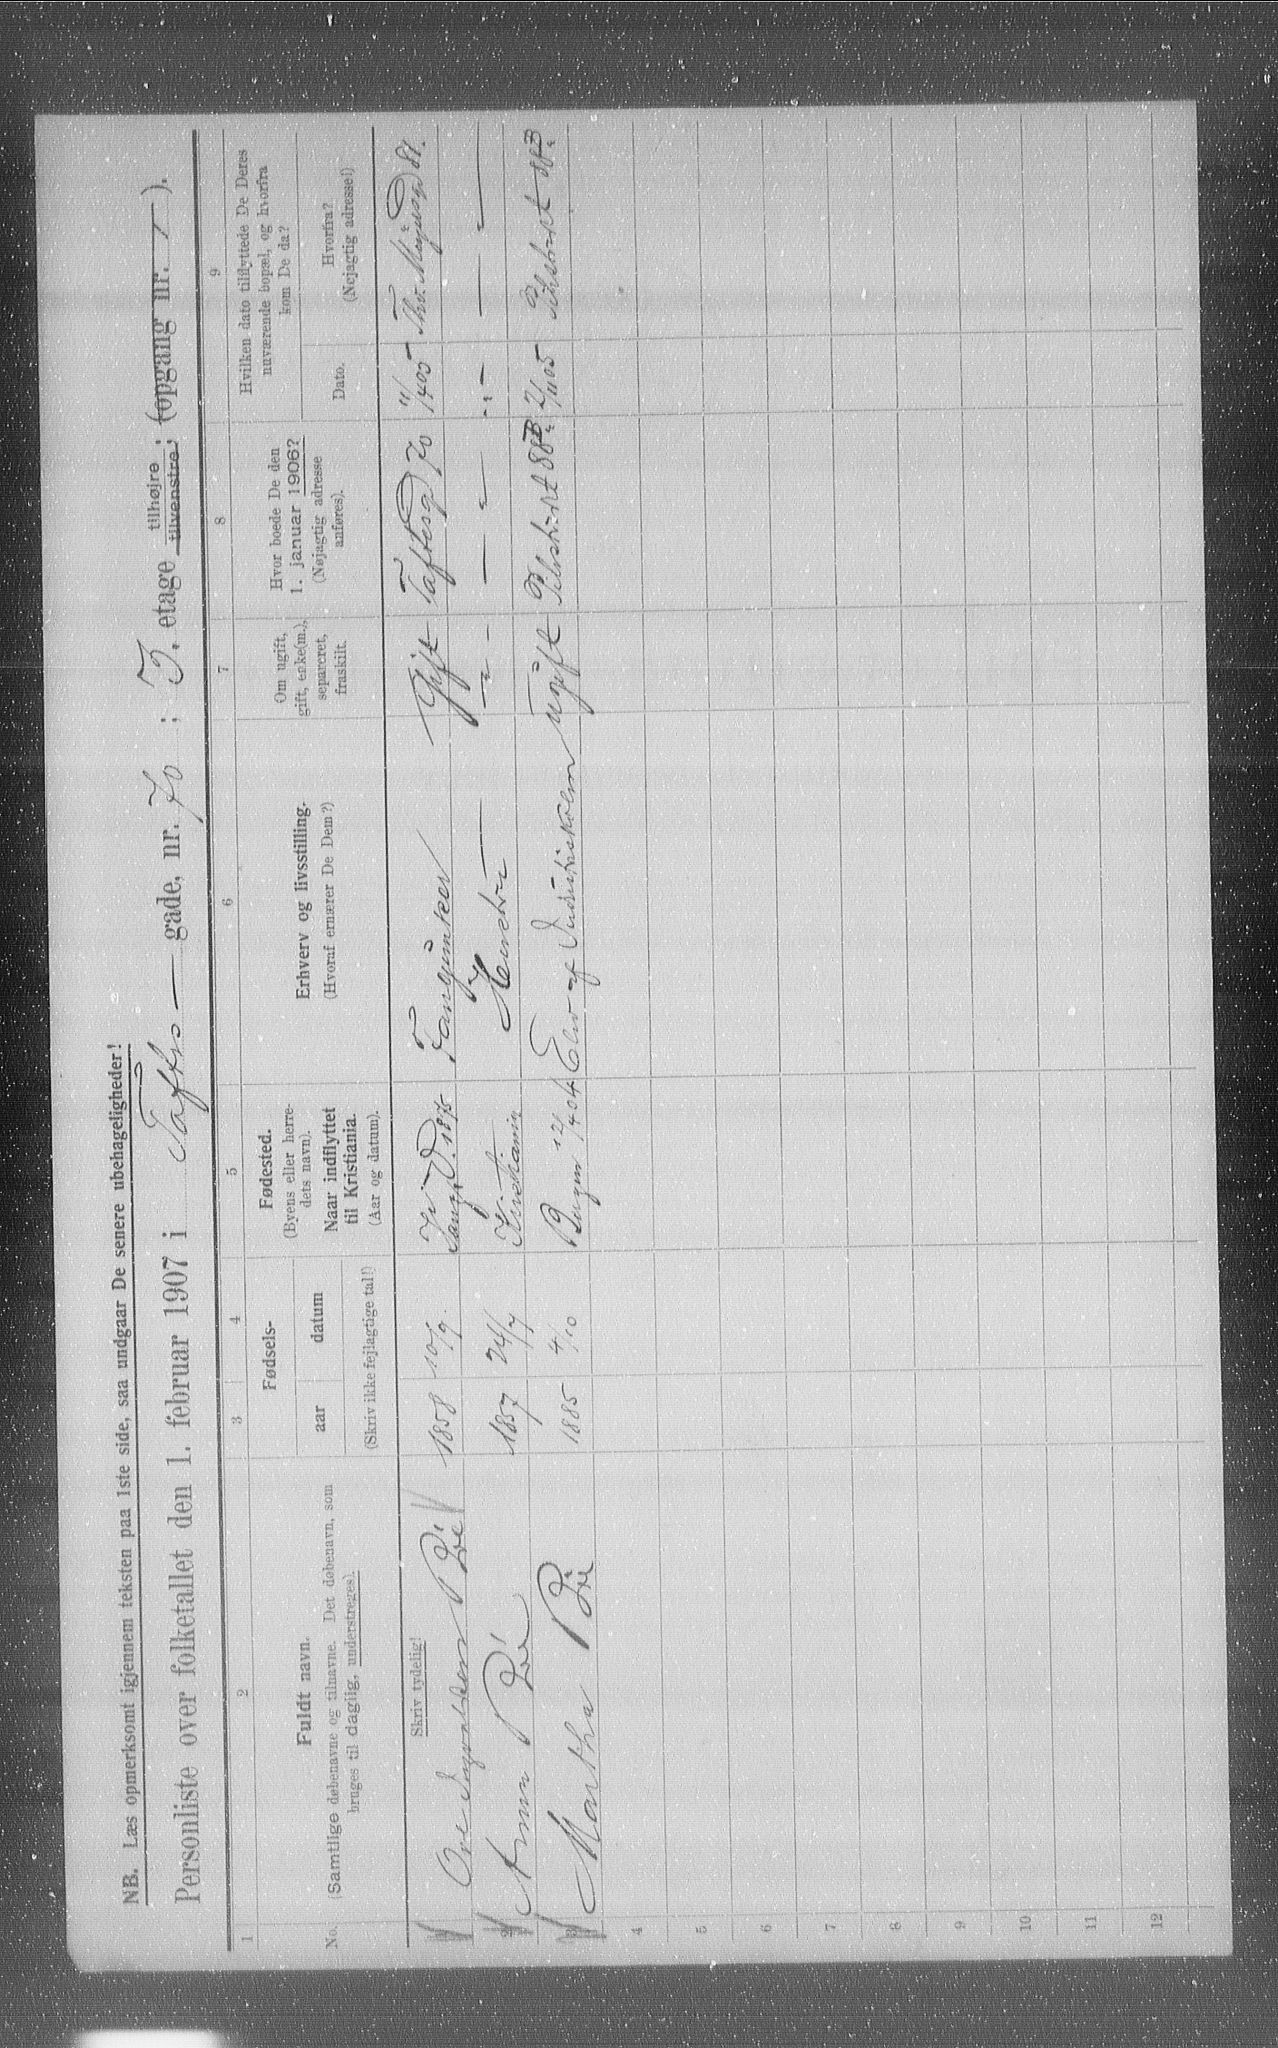 NB. Læs opmerksomt igjennem teksten paa 1ste side, saa undgaar De senere ubehageligheder!
Personliste over folketallet den 1. februar 1907 i Toftes — gade, nr. 70 ; 3. etage tilhøjre tilvenstre ; (opgang nr. ).
1 2 3 4 5 6 7 8 9
No.
Fuldt navn.
(Samtlige døbenavne og tilnavne. Det døbenavn, som
bruges til daglig, understreges).
Fødsels-
aar datum
(Skriv ikke fejlagtige tal!)
Fødested.
(Byens eller herre-
dets navn).
Naar indflyttet
til Kristiania.
(Aar og datum).
Erhverv og livsstilling.
(Hvoraf ernærer De Dem?)
Om ugift,
gift, enke(m.),
separeret,
fraskilt.
Hvor boede De den
1. januar 1906?
(Nøjagtig adresse
anføres).
Hvilken dato tilflyttede De Deres
nuværende bopæl, og hvorfra
kom De da?
Dato.
Hvorfra?
(Nøjagtig adresse!)
Skriv tydelig!
1858 10/9. 1875 Gift Toftesg 70 11/4 05 Thv. Meyersg 81.
2 Anna 1857 24/7 Kristiania Hustru — " — — " — " — — " —
3 Martha 1885 4/10 Bergen 12/4 04 Elev af Industriskolen ugift Pilestrædet 88 2/11 05 Pilestrædet 88
4
5
6
7
8
9
10
11
12